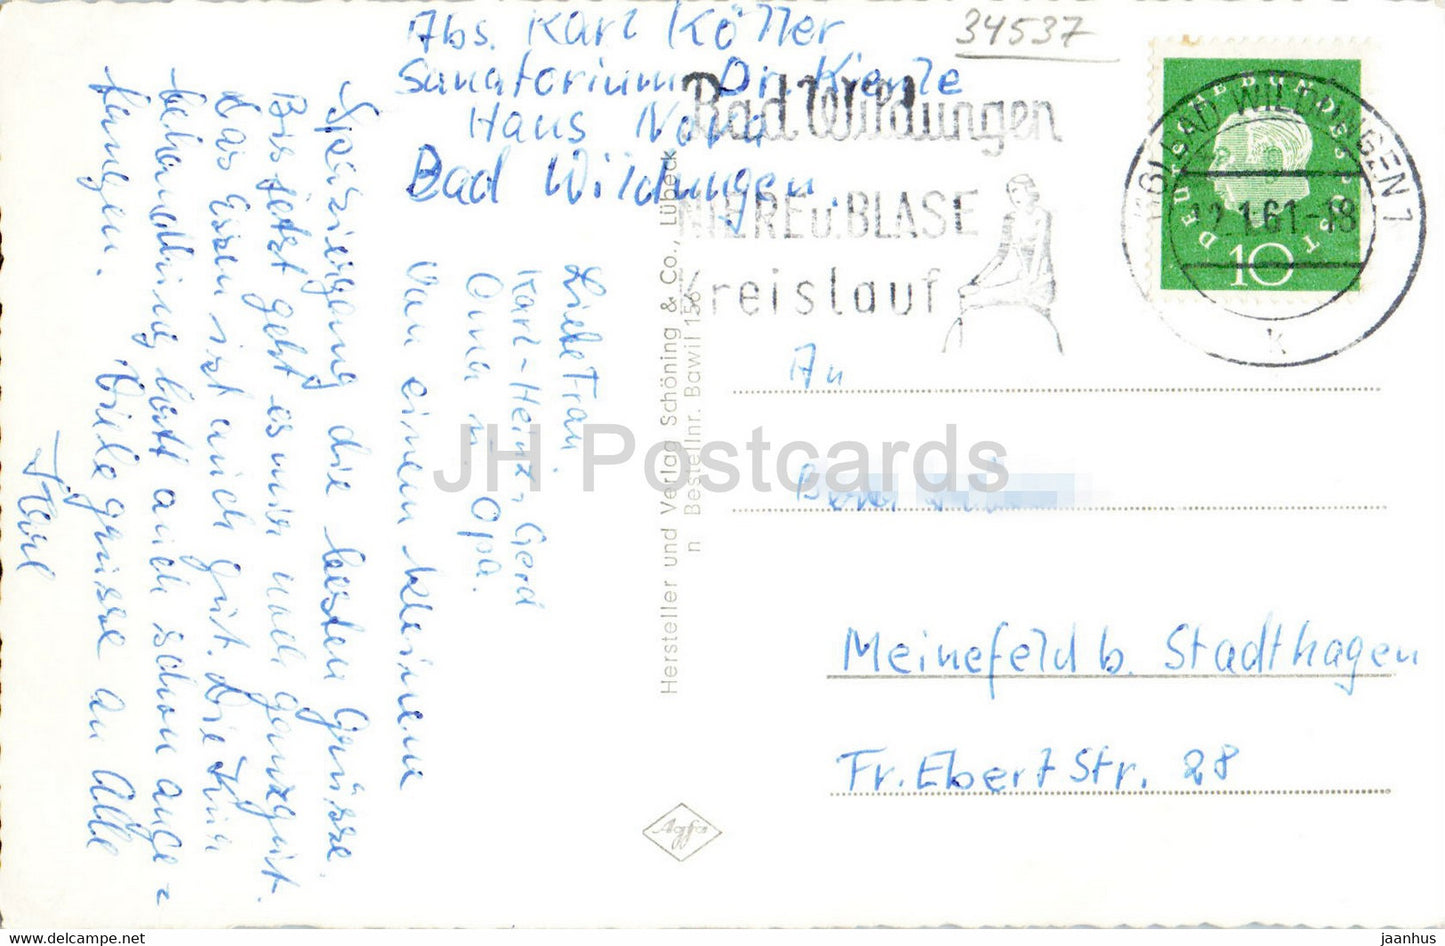 Abs. Karl Köller
Sanatorium Dr. Kienle
Haus Nova
Bad Wildungen.
34537
Bad Wildungen
NIERE u. BLASE
Kreislauf
(16) BAD WILDUNGEN 1
12.1.61-18
k
DEUTSCHE BUNDESPOST
10
Liebe Frau,
Karl-Heinz, Gerd
Oma u. Opa.
Von einem kleinen
Spaziergang die besten Grüsse.
Bis jetzt geht es mir noch ganz gut.
Das Essen ist auch gut. Die Kur
behandlung hat auch schon ange=
fangen. Viele grüsse an Alle
Karl
Hersteller und Verlag Schöning & Co., Lübeck
n Bestellnr. Bawil 156
Agfa
An
Meinefeld b. Stadthagen
Fr. Ebert Str. 28
JH Postcards
jaanhus